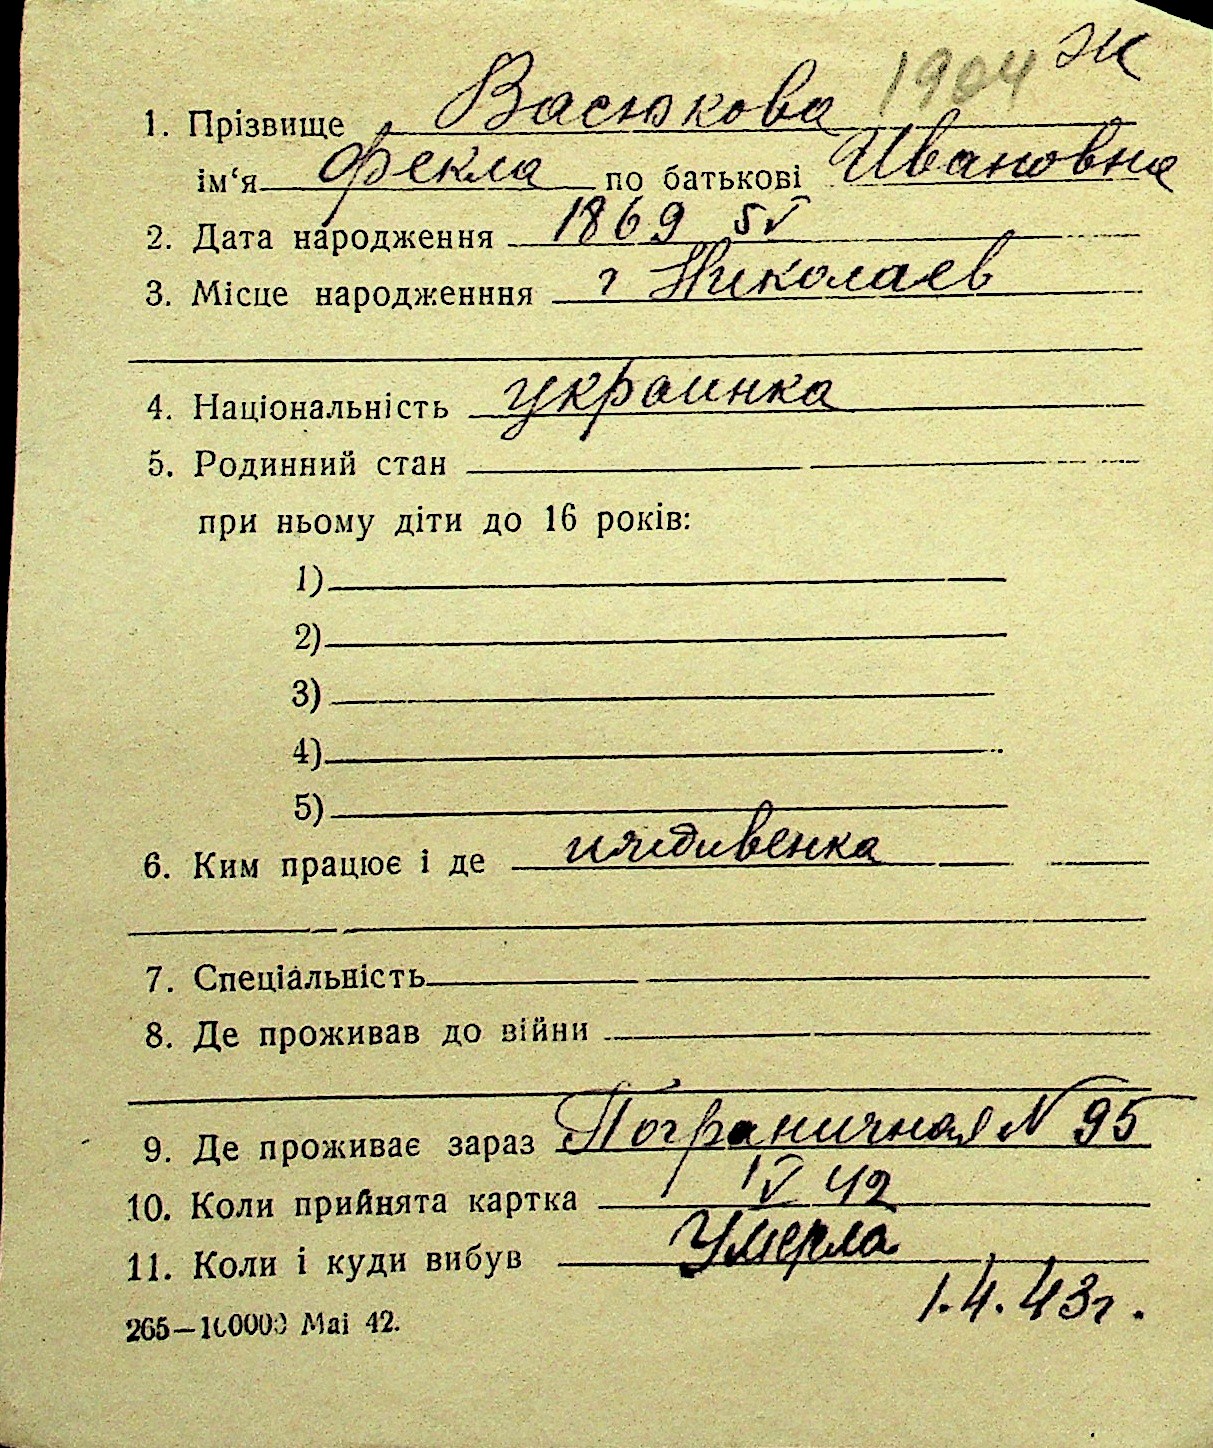 1904 Ж
1. Прізвище Васюкова
ім‘я Фекла по батькові Ивановна
2. Дата народження 1869 5 V
3. Місце народженння г Николаев
4. Національність украинка
5. Родинний стан
при ньому діти до 16 років:
1)
2)
3)
4)
5)
6. Ким працює і де иждивенка
7. Спеціальність
8. Де проживав до війни
9. Де проживає зараз Пограничная N 95
10. Коли прийнята картка V 42
11. Коли і куди вибув Умерла
1.4.43г.
265—100000 Mai 42.